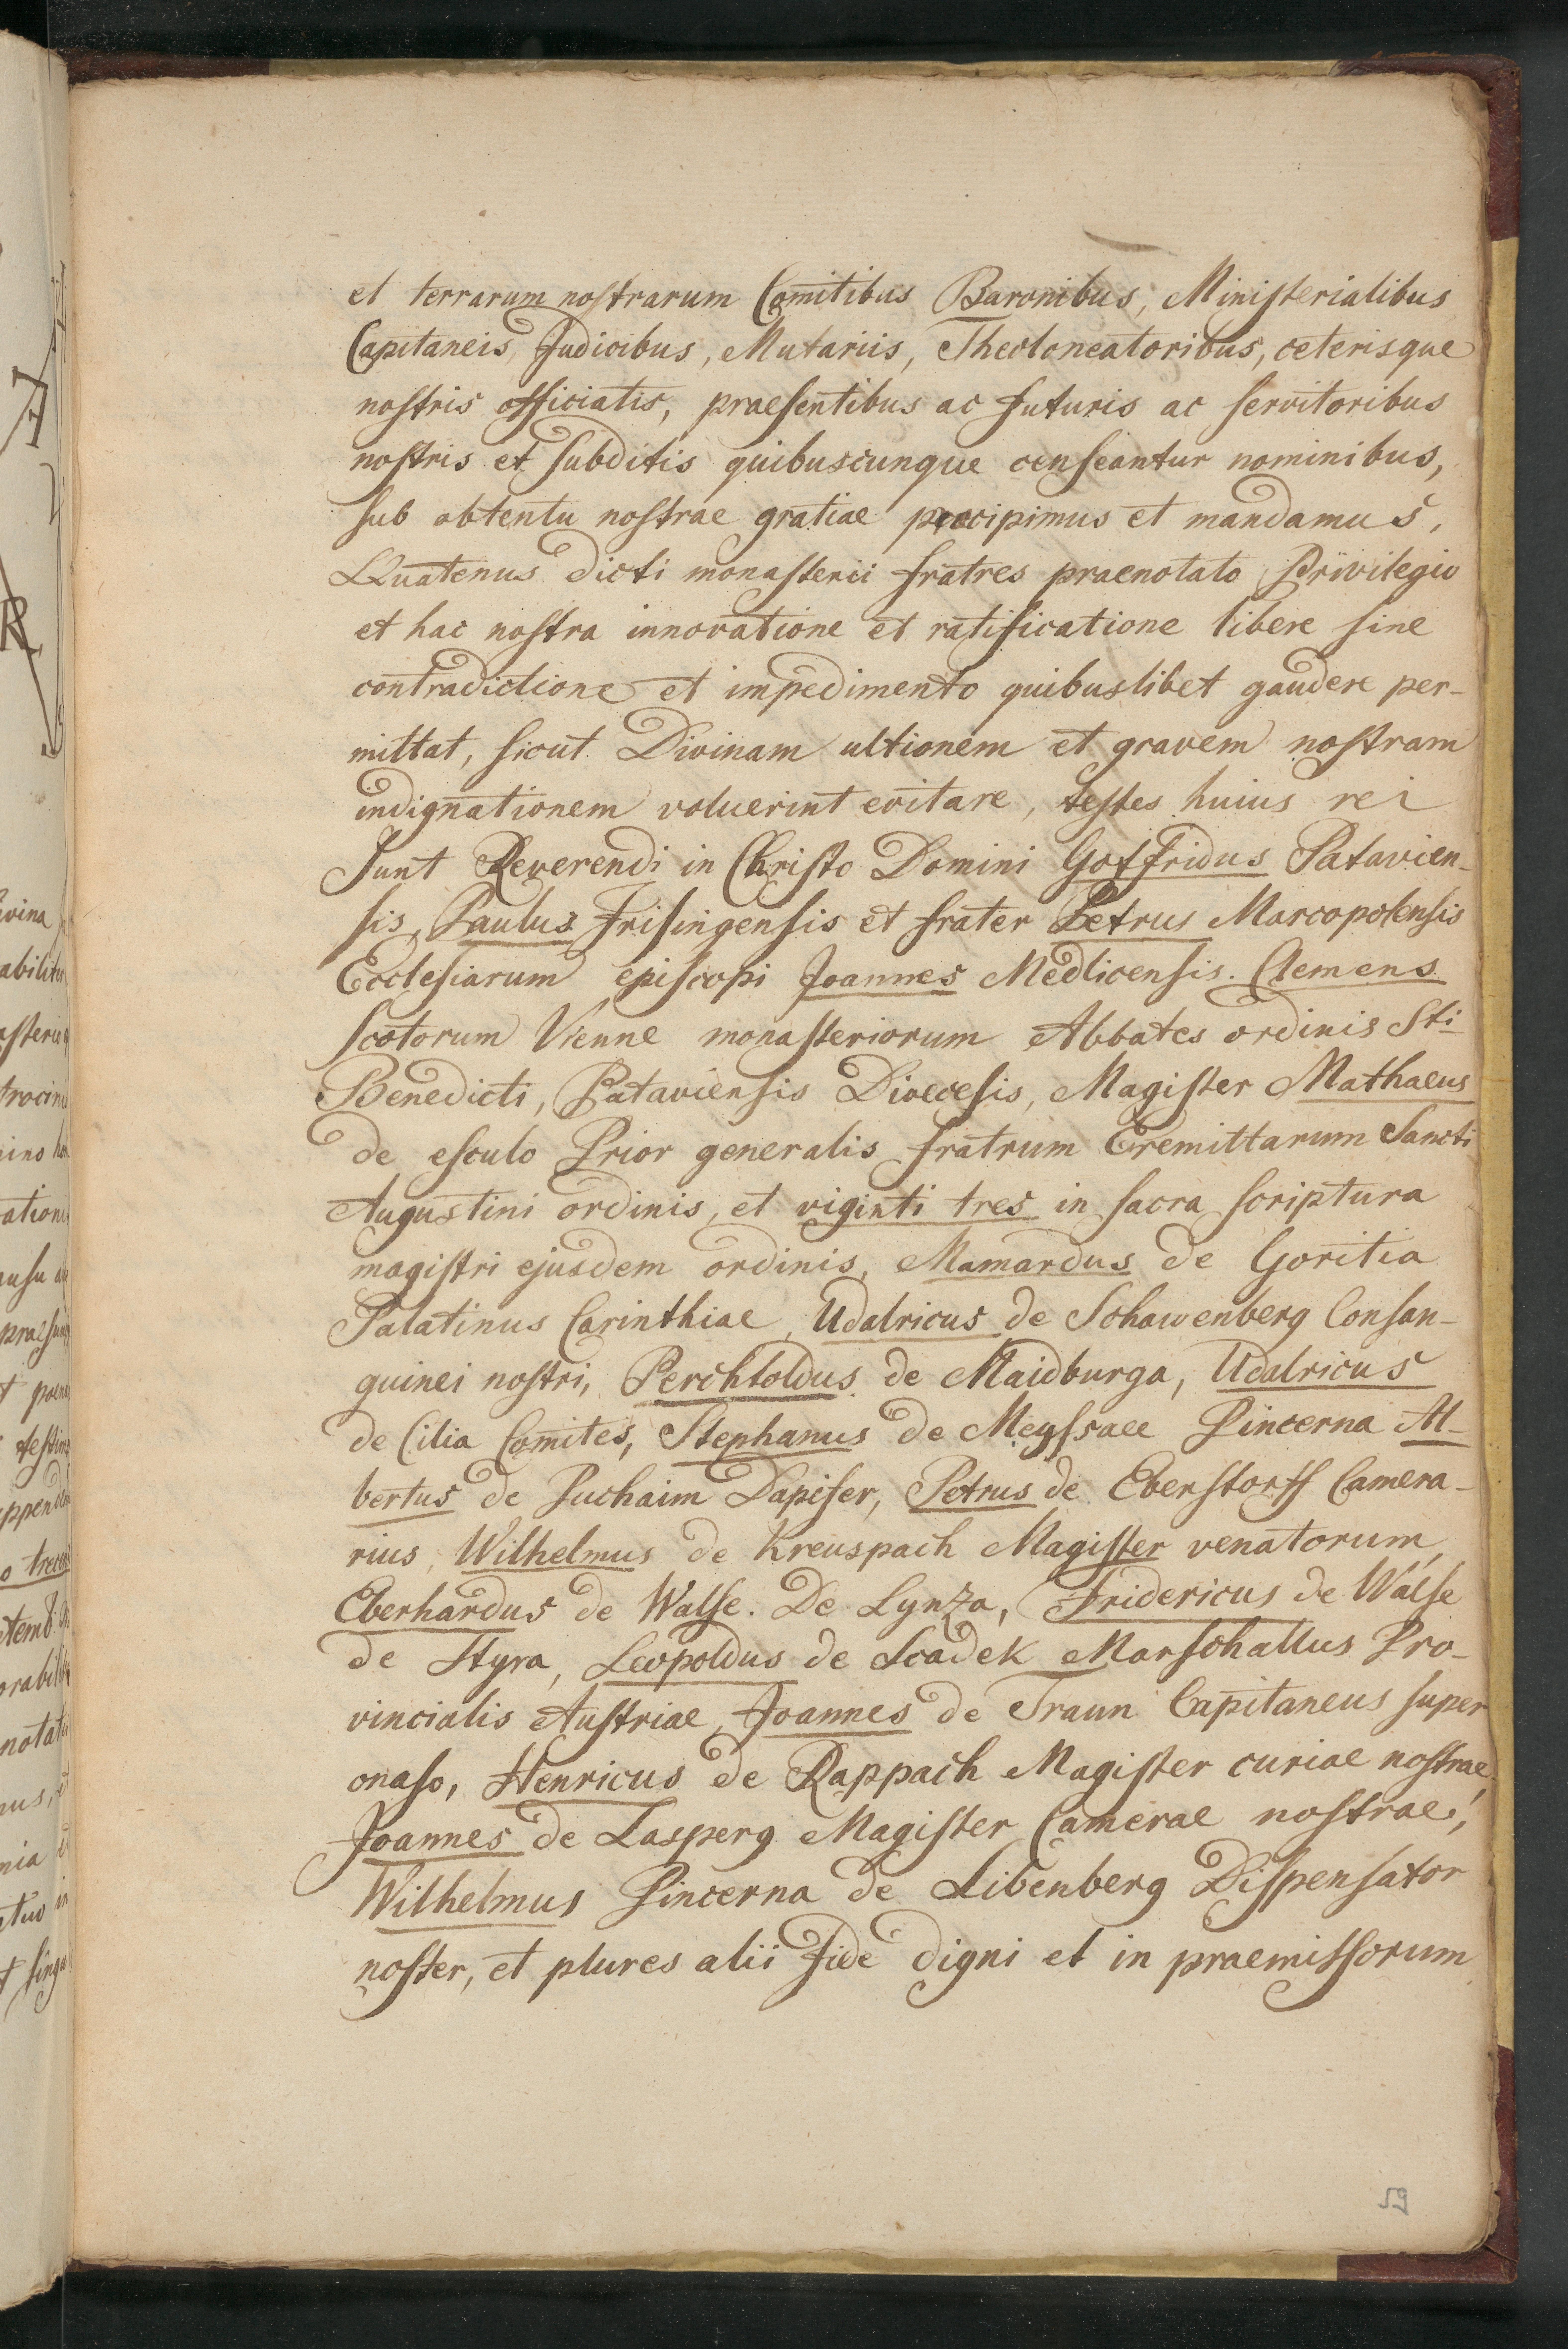 et terrarum nostrarum Comitibus Baronibus, Ministerialibus
Capitaneis, Judicibus, Mutariis, Theoloneatoribus, ceterisque
nostris officiatis, praesentibus ac futuris ac servitoribus
nostris et subditis quibuscunque censeantur nominibus,
sub obtentu nostrae gratiae praecipimus et mandamus,
Quatenus dicti monasterii fratres praenotato Privilegio
et hac nostra innovatione et ratificatione libere sine
contradictione et impedimento quibuslibet gaudere per-
mittat, sicut Divinam ultionem et gravem nostram
indignationem voluerint evitare, testes huius rei
Sunt Reverendi in Christo Domini Gotfridus Patavien-
sis, Paulus Frisingensis et frater Petrus Marcopolensis
Ecclesiarum episcopi Joannes Medlicensis. Clemens
Scotorum Vienne monasteriorum Abbates ordinis Sti
Benedicti, Pataviensis Dioecesis, Magister Mathaeus
de esculo Prior generalis fratrum Eremittarum Sancti
Augustini ordinis, et viginti tres in sacra scriptura
magistri ejusdem ordinis, Mamardus de Goritia
Palatinus Carinthiae, Udalricus de Schawenberg Consan-
guinei nostri, Perchtoldus de Maidburga, Udalricus
de Cilia Comites, Stephanus de Meyssaee Pincerna Al-
bertus de Puchaim Dapifer, Petrus de Eberstorff Camera-
rius, Wilhelmus de Kreuspach Magister venatorum,
Eberhardus de Walse. De Lynza, Fridericus de Walse
de Styra, Leopoldus de Scadek Marschallus Pro-
vincialis Austriae, Joannes de Traun Capitaneus super
onaso, Henricus de Rappach Magister curiae nostrae
Joannes de Lasperg Magister Camerae nostrae,
Wilhelmus Pincerna de Libenberg Dispensator
noster, et plures alii fide digni et in praemissorum
59